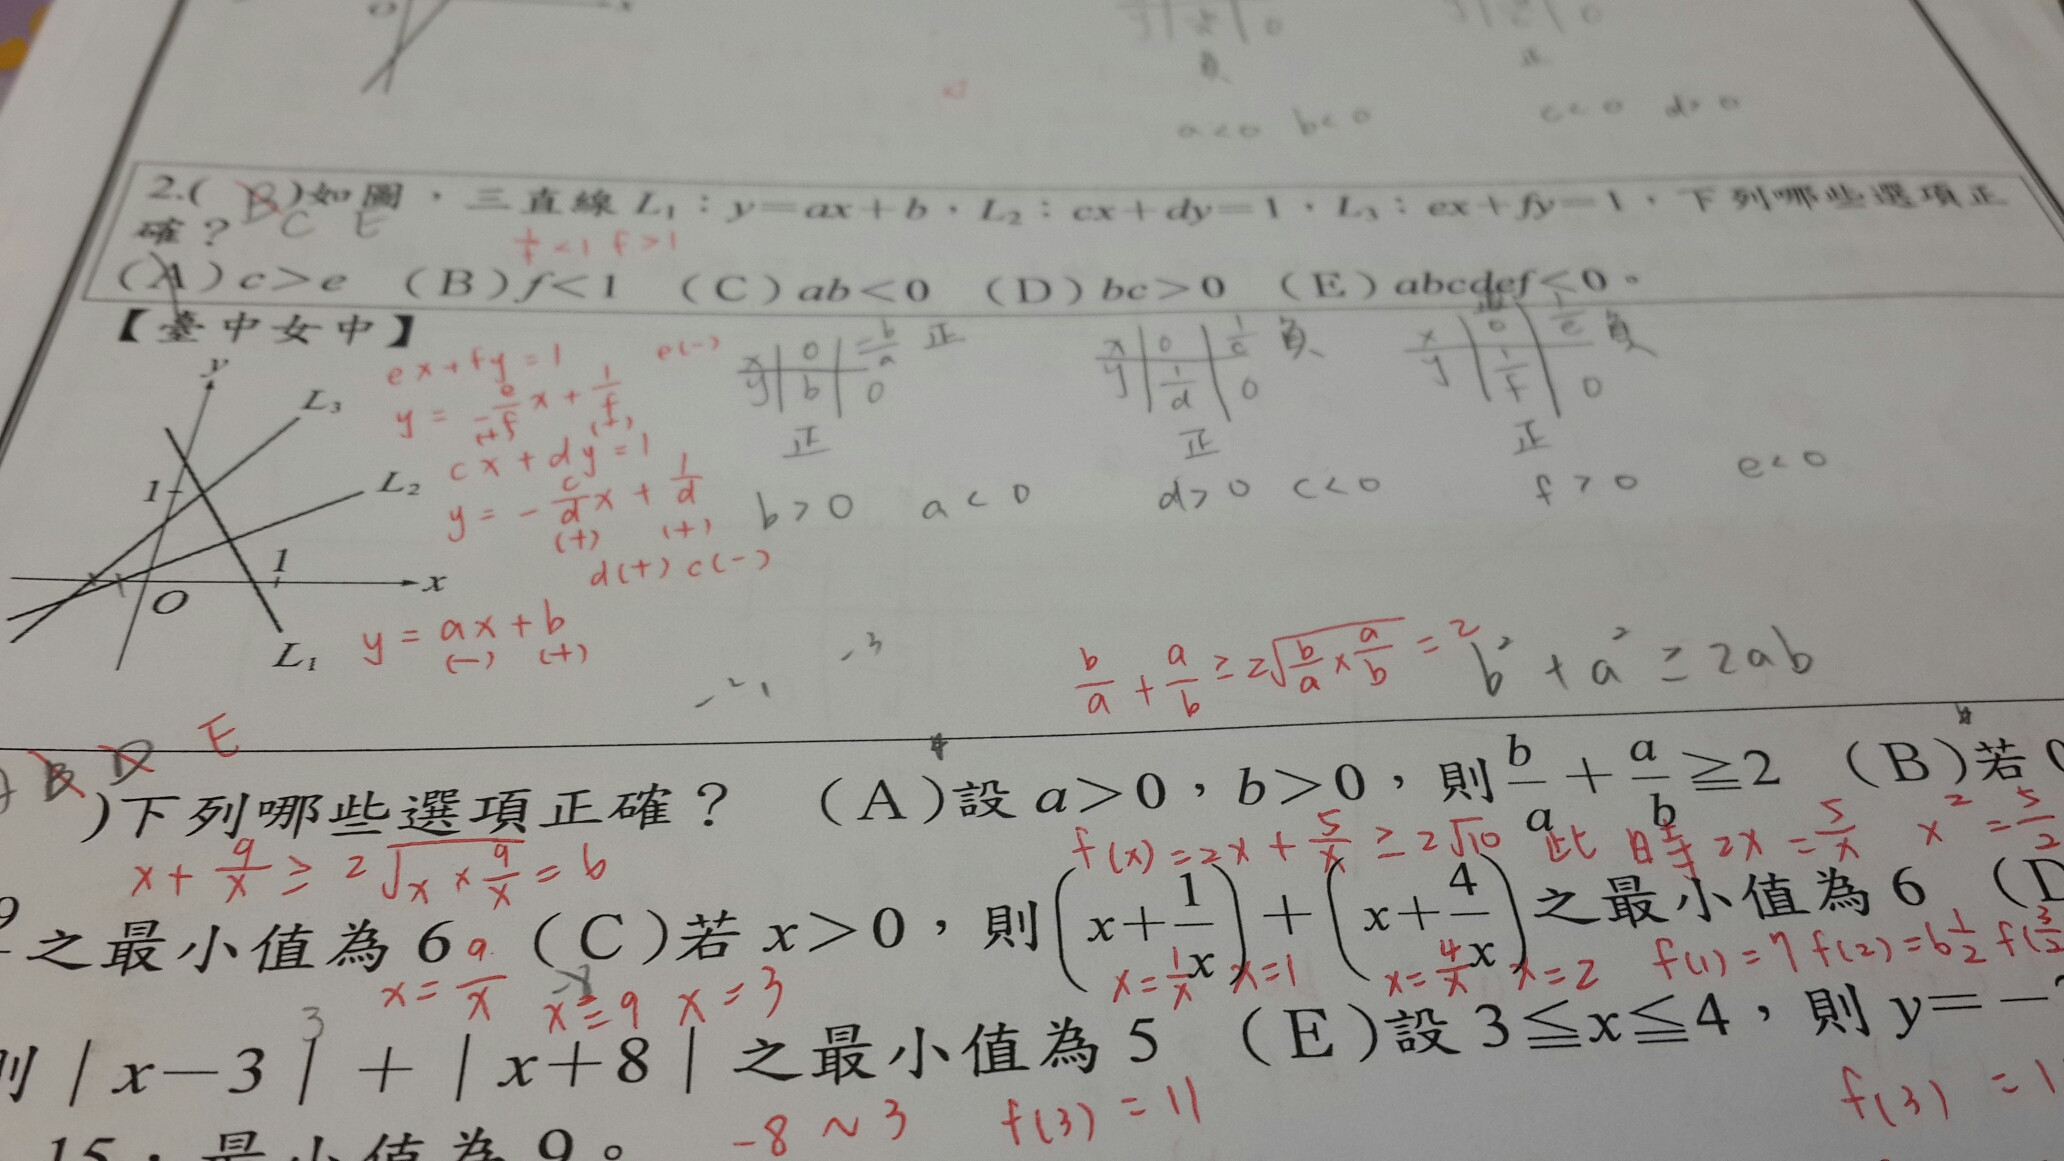 x
y
0
0
負
正
a<0 b<0
c<0 d>0
2.( B )如圖，三直線L₁：y=ax+b，L₂：cx+dy=1，L₃：ex+fy=1，下列哪些選項正
確？ C E
1/f <1 f>1
(A)c>e (B)f<1 (C)ab<0 (D)bc>0 (E)abcdef<0。
【臺中女中】
ex+fy=1
y = -e/f x + 1/f
e(-)
(+) (+)
cx+dy=1
y = -c/d x + 1/d
(+) (+)
d(+) c(-)
y = ax+b
(-) (+)
y
L₃
1
L₂
1
O
x
L₁
x 0 -b/a 正
y b 0
正
b>0 a<0
x 0 1/c 負
y 1/d 0
正
d>0 c<0
x 0 1/e 負
y 1/f 0
正
f>0 e<0
-3
b/a + a/b ≥ 2√(b/a × a/b) = 2
b² + a² ≥ 2ab
B D E
)下列哪些選項正確？ (A)設 a>0，b>0，則 b/a + a/b ≧2 (B)若
x + 9/x ≥ 2√(x × 9/x) = 6
f(x) = 2x + 5/x ≥ 2√10 此時 2x = 5/x x² = 5/2
之最小值為 6 (C)若 x>0，則(x+1/x)+(x+4/x)之最小值為 6 (D
x = 9/x x²=9 x=3
x=1/x x=1 x=4/x x=2 f(1)=7 f(2)=6 1/2
則 |x-3| + |x+8| 之最小值為 5 (E)設 3≦x≦4，則 y=-
3
-8 ~ 3 f(3) = 11
f(3) = 1
15，最小值為 9。